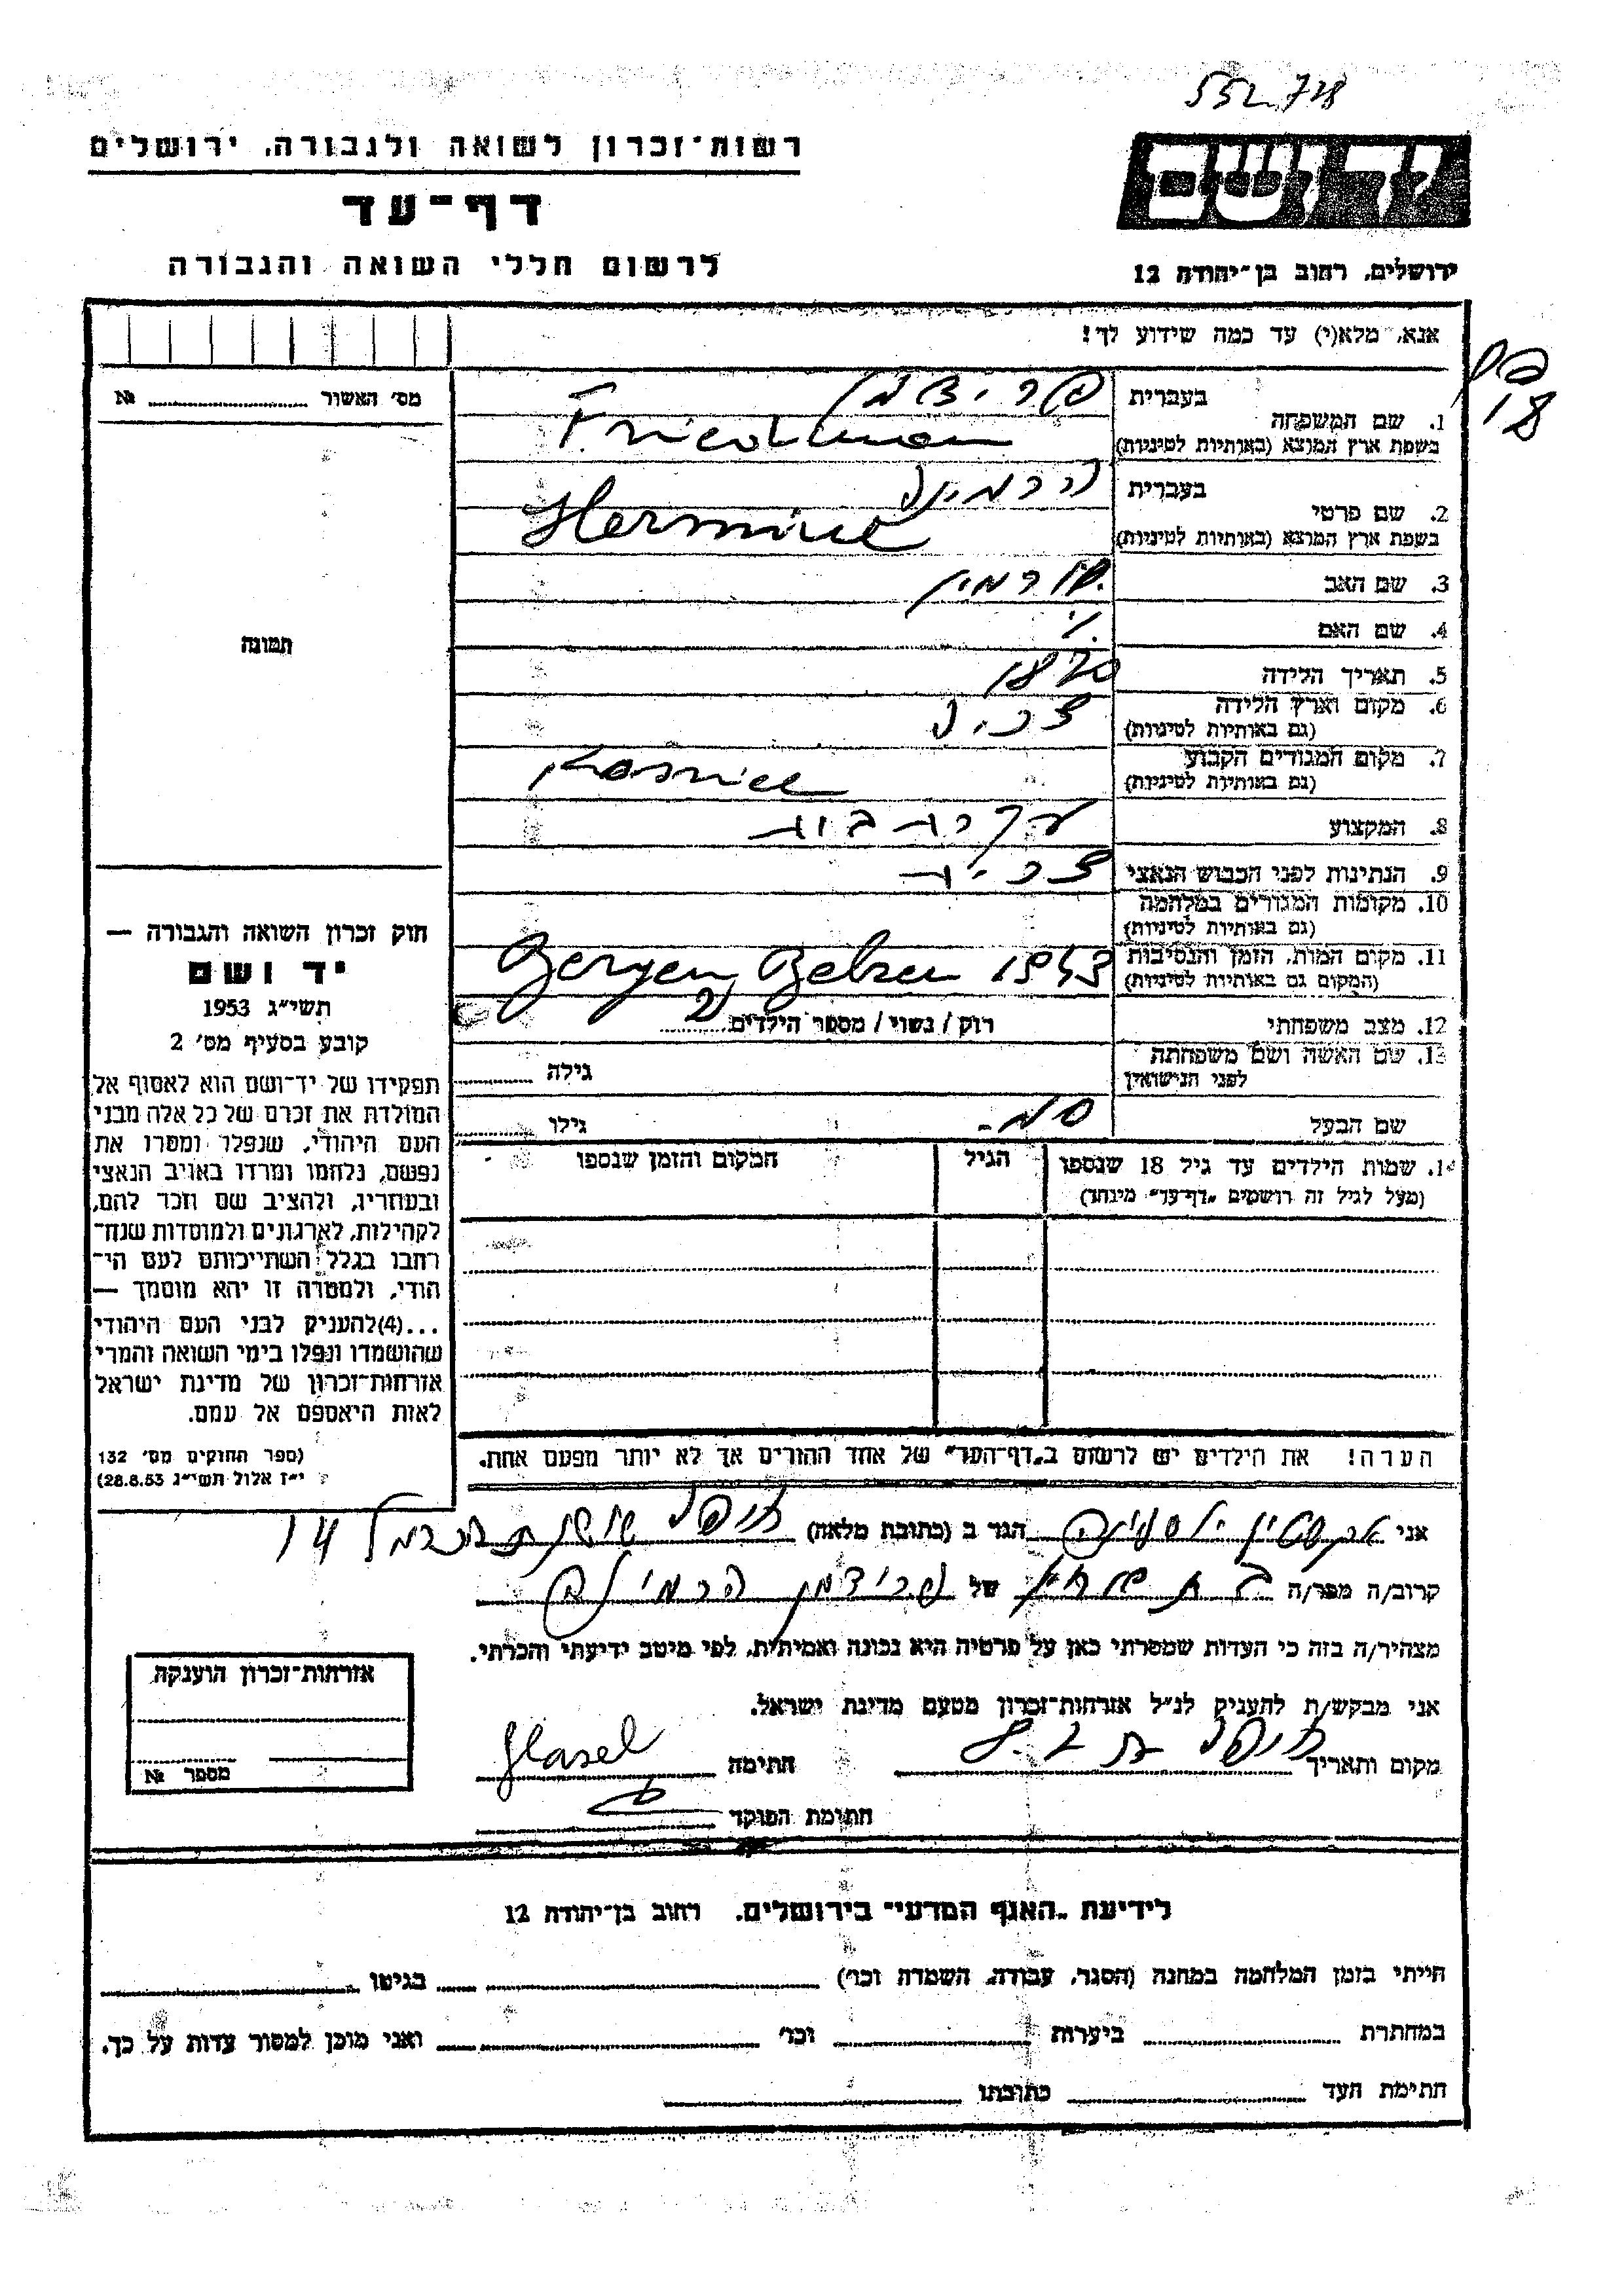 552.728
רשות־זכרון לשואה ולגבורה, ירושלים
דף־עד
לרשום חללי השואה והגבורה
יד ושם
ירושלים, רחוב בן־יהודה 12
אנא, מלא(י) עד כמה שידוע לך!
18
מס׳ האשור № 
תמונה
1. שם המשפחה
בעברית פרידמן
בשפת ארץ המוצא (באותיות לטיניות) Friedman
2. שם פרטי
בעברית הרמינה
בשפת ארץ המוצא (באותיות לטיניות) Hermine
3. שם האב
4. שם האם
5. תאריך הלידה 1870
6. מקום וארץ הלידה
(גם באותיות לטיניות)
7. מקום המגורים הקבוע
(גם באותיות לטיניות)
8. המקצוע עקרת בית
9. הנתינות לפני הכבוש הנאצי
10. מקומות המגורים במלחמה
(גם באותיות לטיניות)
11. מקום המות, הזמן והנסיבות Bergen Belzen 1943
(המקום גם באותיות לטיניות)
12. מצב משפחתי רוק / נשוי / מספר הילדים 2
13. שם האשה ושם משפחתה
לפני הנישואין
גילה
שם הבעל
גילו
14. שמות הילדים עד גיל 18 שנספו
(מעל לגיל זה רושמים „דף־עד” מיוחד)
הגיל
המקום והזמן שנספו
חוק זכרון השואה והגבורה —
יד ושם
תשי״ג 1953
קובע בסעיף מס׳ 2
תפקידו של יד־ושם הוא לאסוף אל
המולדת את זכרם של כל אלה מבני
העם היהודי, שנפלו ומסרו את
נפשם, נלחמו ומרדו באויב הנאצי
ובעוזריו, ולהציב שם וזכר להם,
לקהילות, לארגונים ולמוסדות שנח־
רבו בגלל השתייכותם לעם הי־
הודי, ולמטרה זו יהא מוסמך —
...(4)להעניק לבני העם היהודי
שהושמדו ונפלו בימי השואה והמרי
אזרחות־זכרון של מדינת ישראל
לאות היאספם אל עמם.
(ספר החוקים מס׳ 132
י״ז אלול תשי״ג 28.8.53)
הערה! את הילדים יש לרשום ב„דף־העד” של אחד ההורים אך לא יותר מפעם אחת.
אני הגר ב (כתובת מלאה) חיפה 14
קרוב/ה מפר/ה של פרידמן הרמינה
מצהיר/ה בזה כי העדות שמסרתי כאן על פרטיה היא נכונה ואמיתית, לפי מיטב ידיעתי והכרתי.
אני מבקש/ת להעניק לנ״ל אזרחות־זכרון מטעם מדינת ישראל.
מקום ותאריך חיפה חתימה Glasel
חתימת הפוקד
אזרחות־זכרון הוענקה
מספר №
לידיעת „האגף המדעי” בירושלים, רחוב בן־יהודה 12
הייתי בזמן המלחמה במחנה (הסגר, עבודה, השמדה וכו׳) בגיטו
במחתרת ביערות וכו׳ ואני מוכן למסור עדות על כך.
חתימת העד כתובתו